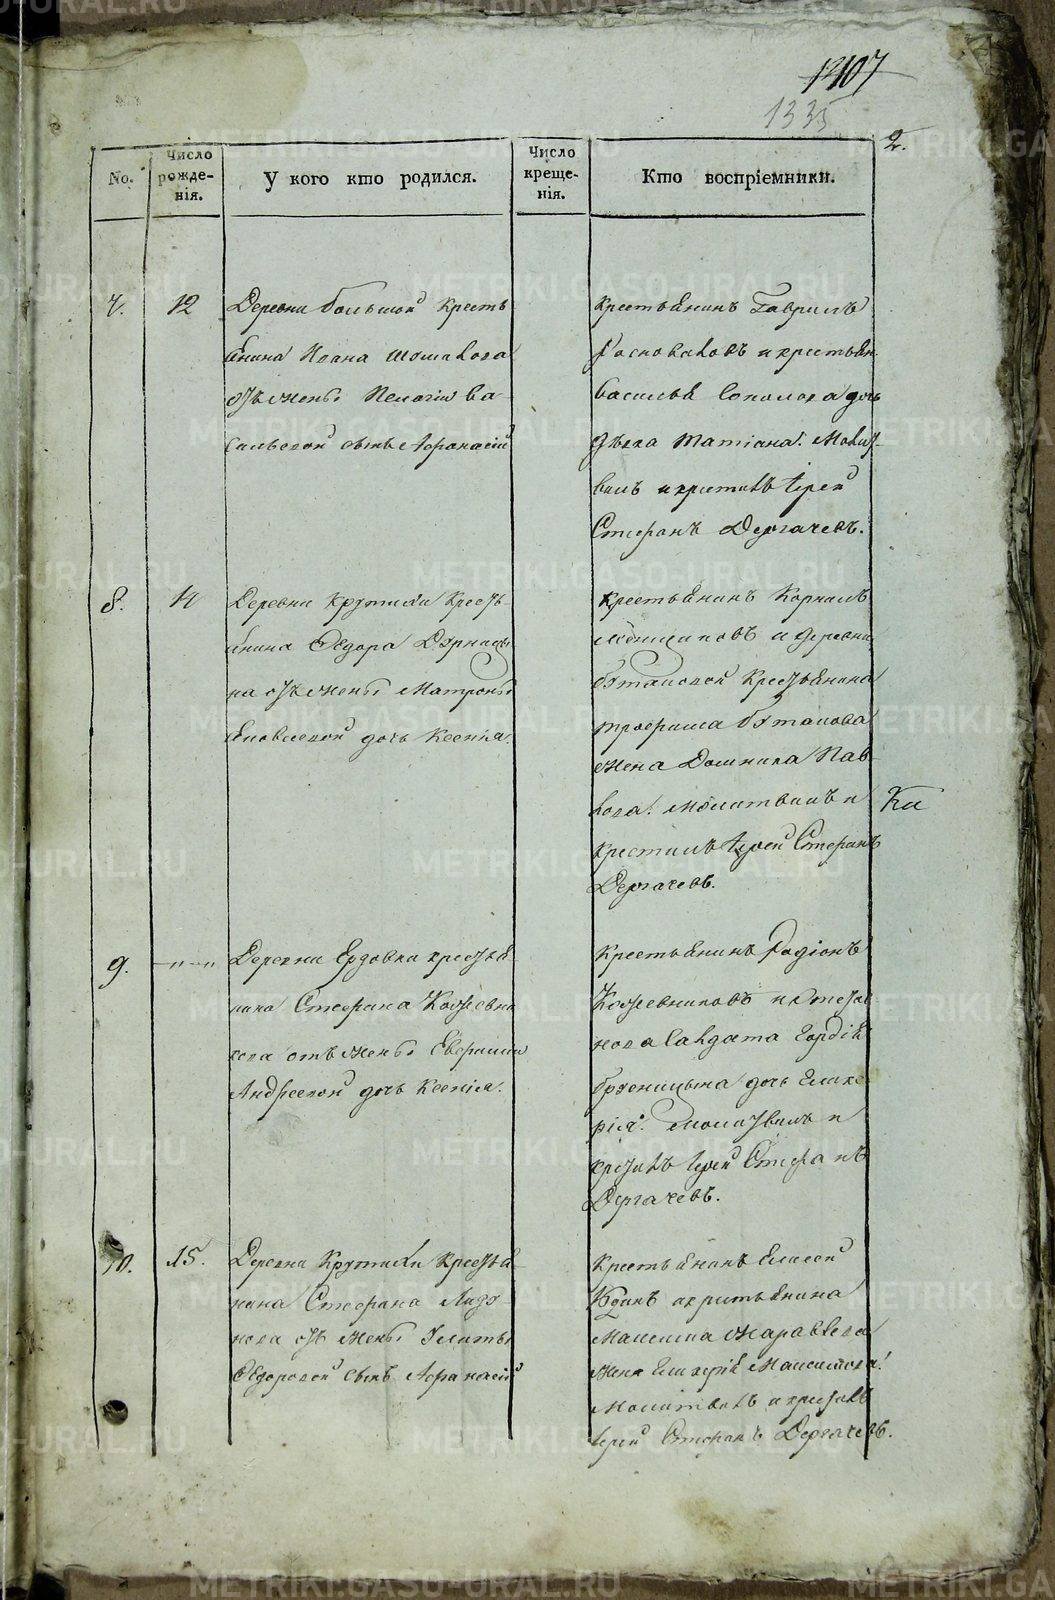 1407
1335
2.
No.
Число рожде-нія.
У кого кто родился.
Число креще-нія.
Кто воспріемники.
7.
12
Деревни большой кресть
янина Иоана Шошакова
отъ жены Пелагіи Ва
сильевой сынъ Афонасій
крестьянинъ Гаврилъ
и крестьян.
Василья Соломова дочь
дѣвка Татіана. Молит-
вилъ и крестилъ Іерей
Стефанъ Дергачевъ.
8.
Деревни Крутихи кресть-
янина Ѳедора
на отъ жены Матроны
Яковлевой дочь Ксенія.
крестьянинъ Корнилъ
и деревни
Бутаковой крестьянина
Трофима Бутакова
жена Домника Пав-
лова. Молитвилъ и
крестилъ Іерей Стефанъ
Дергачевъ.
Ки
9.
Деревни Ердовки крестья
нина Стефана Кожевни
кова отъ жены Евфиміи
Андреевой дочь Ксенія.
крестьянинъ Родіонъ
Кожевниковъ и отстав
нова Салдата Гордѣя
дочь Глике
рія. Молитвилъ и
крестилъ Іерей Стефанъ
Дергачевъ.
10.
15.
Деревни Крутихи крестья-
нина Стефана
нова отъ жены Улиты
Ѳедоровой сынъ Афонасій
крестьянинъ Елисей
Юдинъ и крестьянина
Максима Жаравлева
жена Гликерія Максимова.
Молитвилъ и крестилъ
Іерей Стефанъ Дергачевъ.
METRIKI.GASO-URAL.RU